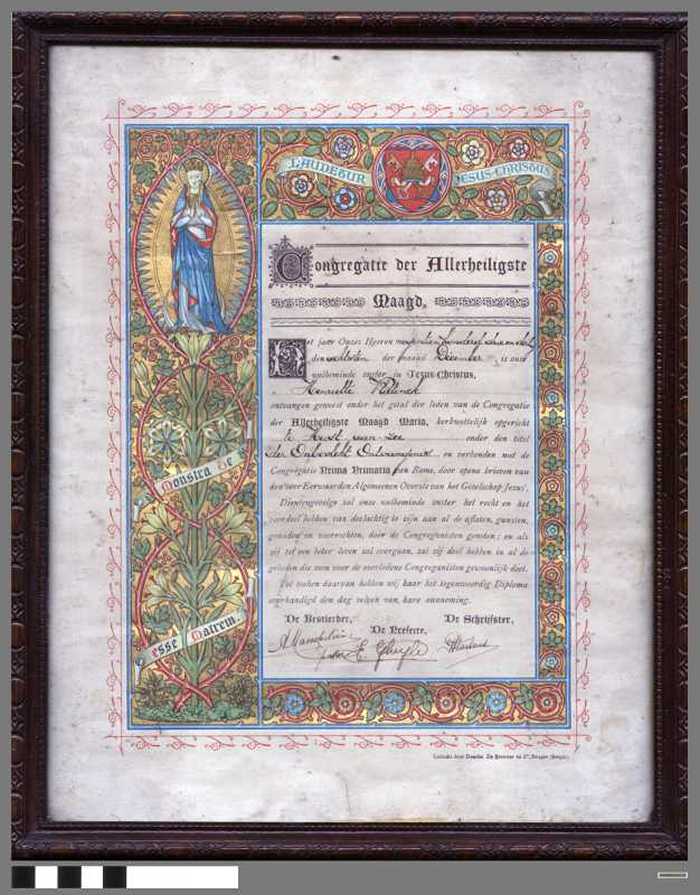 LAUDETUR JESUS-CHRISTUS
Congregatie der Allerheiligste
Maagd,
Het jaar Onzes Heeren
den achtsten der maand December is onze
welbeminde zuster in Jezus-Christus,
Henriette
ontvangen geweest onder het getal der leden van de Congregatie
der Allerheiligste Maagd Maria, kerkwettelijk opgericht
te Heist aan Zee onder den titel
der Onbevlekt Ontvangenis en verbonden met de
Congregatie Prima Primaria van Rome, door opene brieven van
den zeer Eerwaarden Algemeenen Overste van het Gezelschap Jezus'.
Dientengevolge zal onze welbeminde zuster het recht en het
voordeel hebben van deelachtig te zijn aan al de aflaten, gunsten,
genaden en voorrechten, door de Congreganisten genoten; en als
zij tot een beter leven zal overgaan, zal zij deel hebben in al de
gebeden die men voor de overledene Congreganisten gewoonlijk doet.
Tot teeken daarvan hebben wij haar het tegenwoordig Diploma
overhandigd den dag zelven van hare aanneming.
De Bestierder, De Prefecte, De Schrijfster,
Monstra te
esse Matrem.